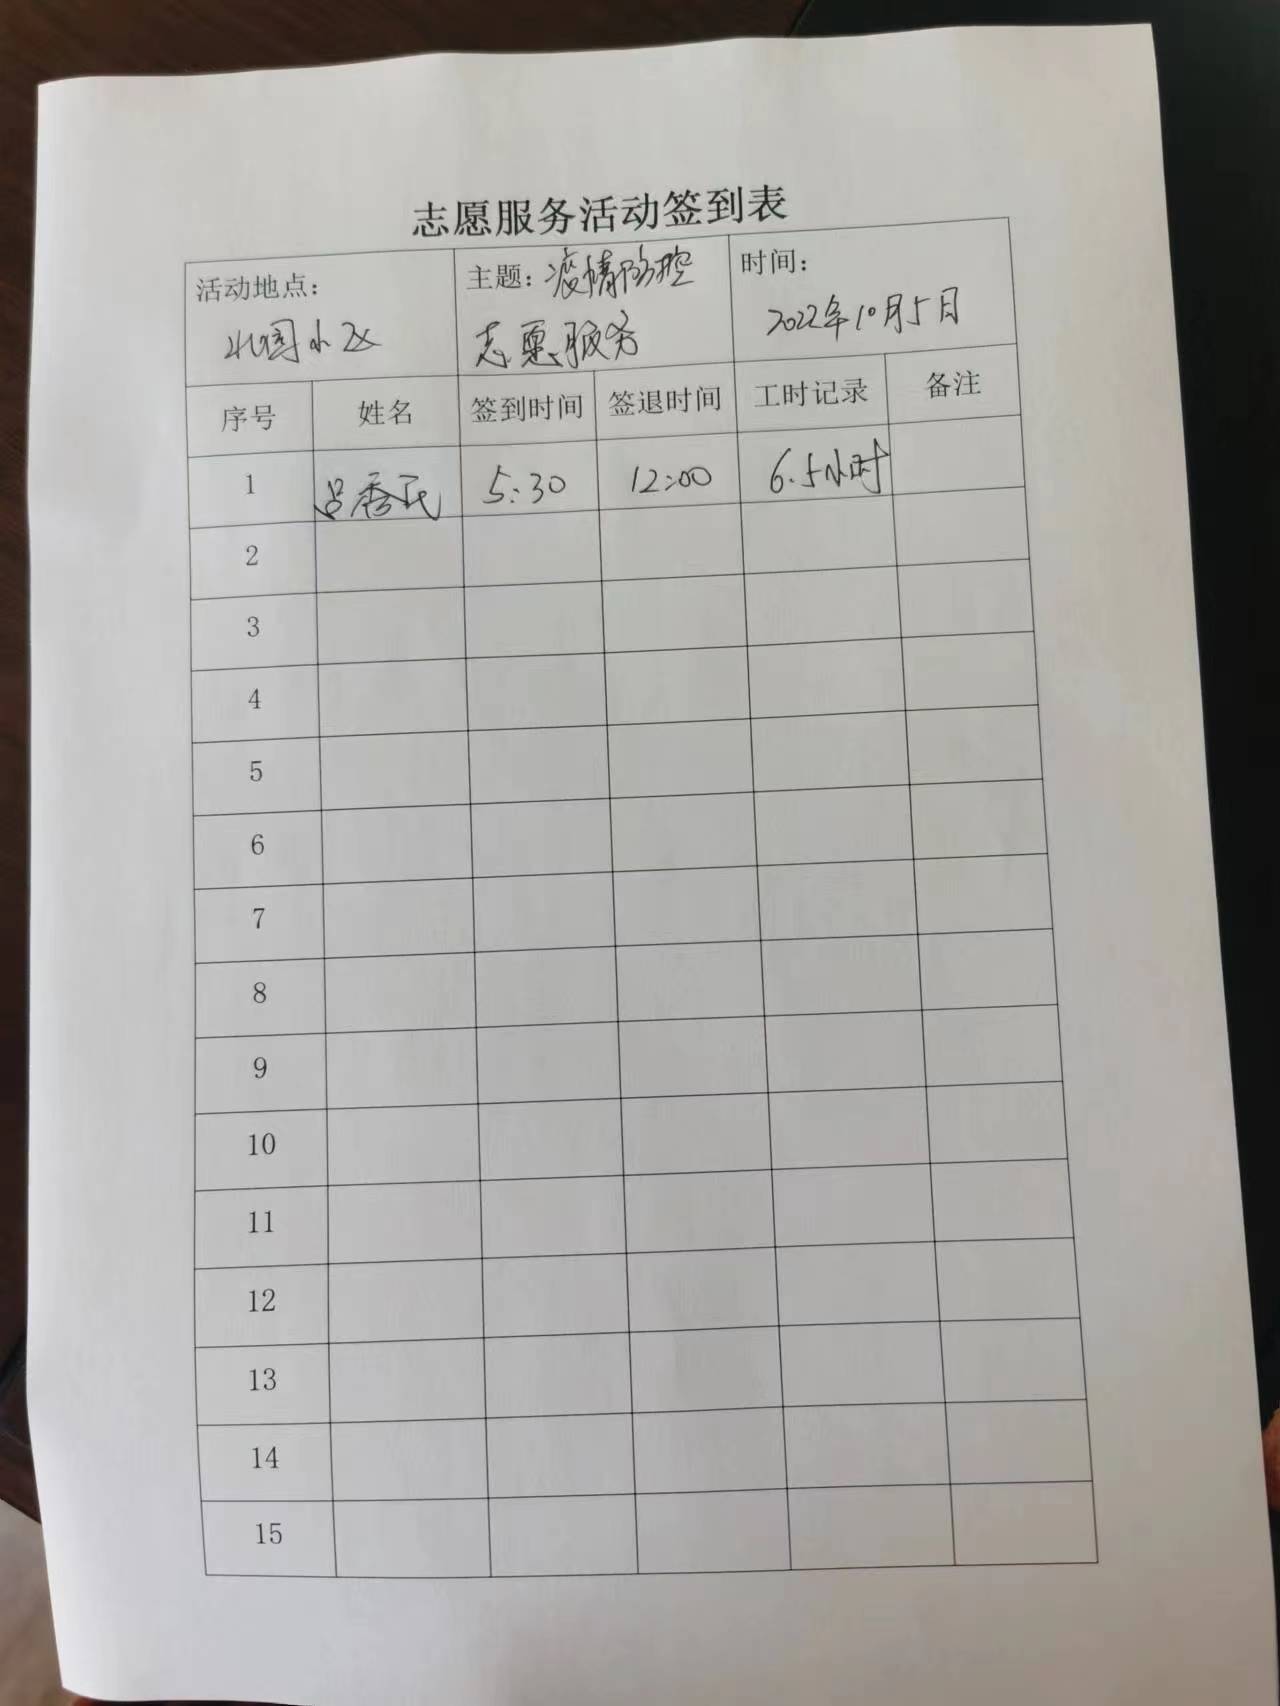 志愿服务活动签到表
活动地点：
北园小区
主题：疫情防控
志愿服务
时间：
2022年10月5日
序号 姓名 签到时间 签退时间 工时记录 备注
1 吕秀民 5:30 12:00 6.5小时
2
3
4
5
6
7
8
9
10
11
12
13
14
15